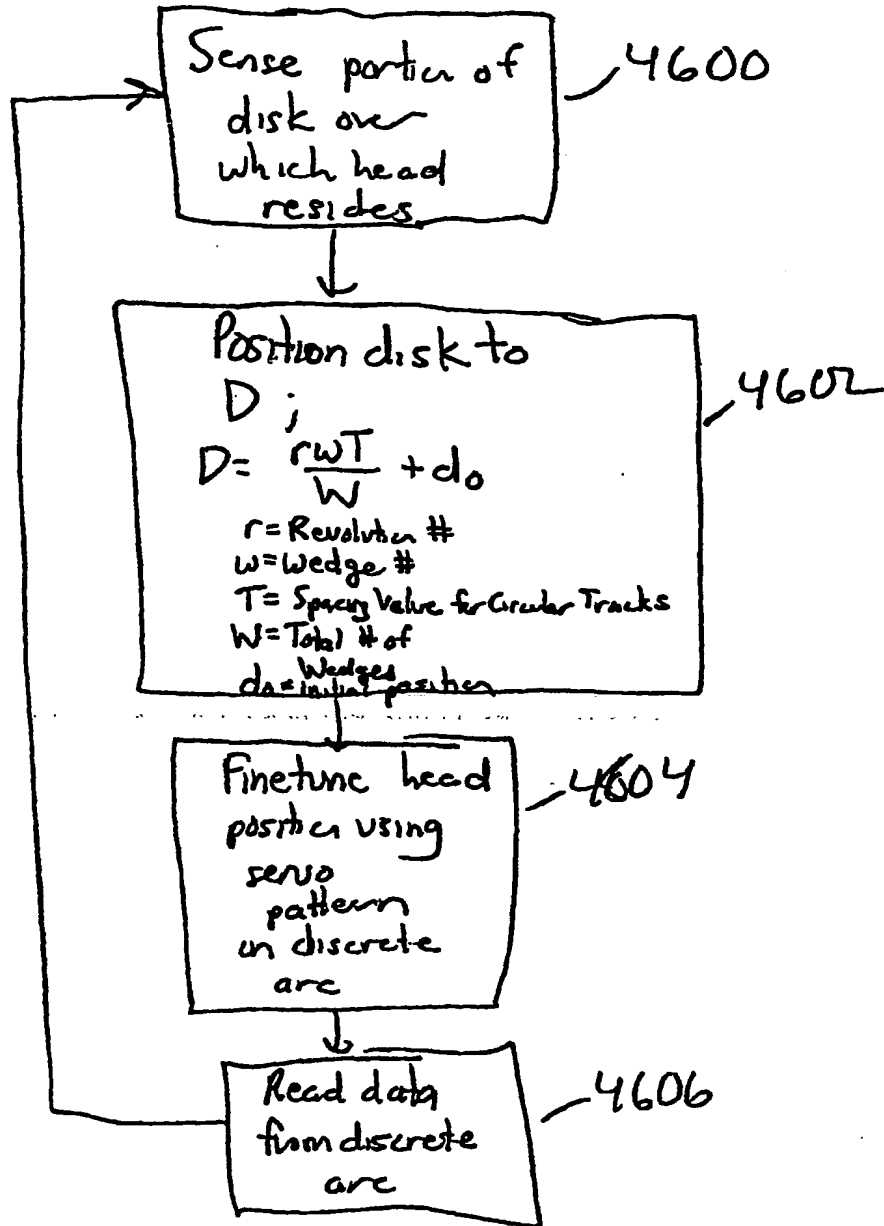 Sense portion of
disk over
which head
resides
4600
Position disk to
D ;
D= rwT/W + do
r=Revolution #
w=Wedge #
T= Spacing Value for Circular Tracks
W=Total # of
Wedges
do=initial position
4602
Finetune head
position using
servo
pattern
on discrete
arc
4604
Read data
from discrete
arc
4606